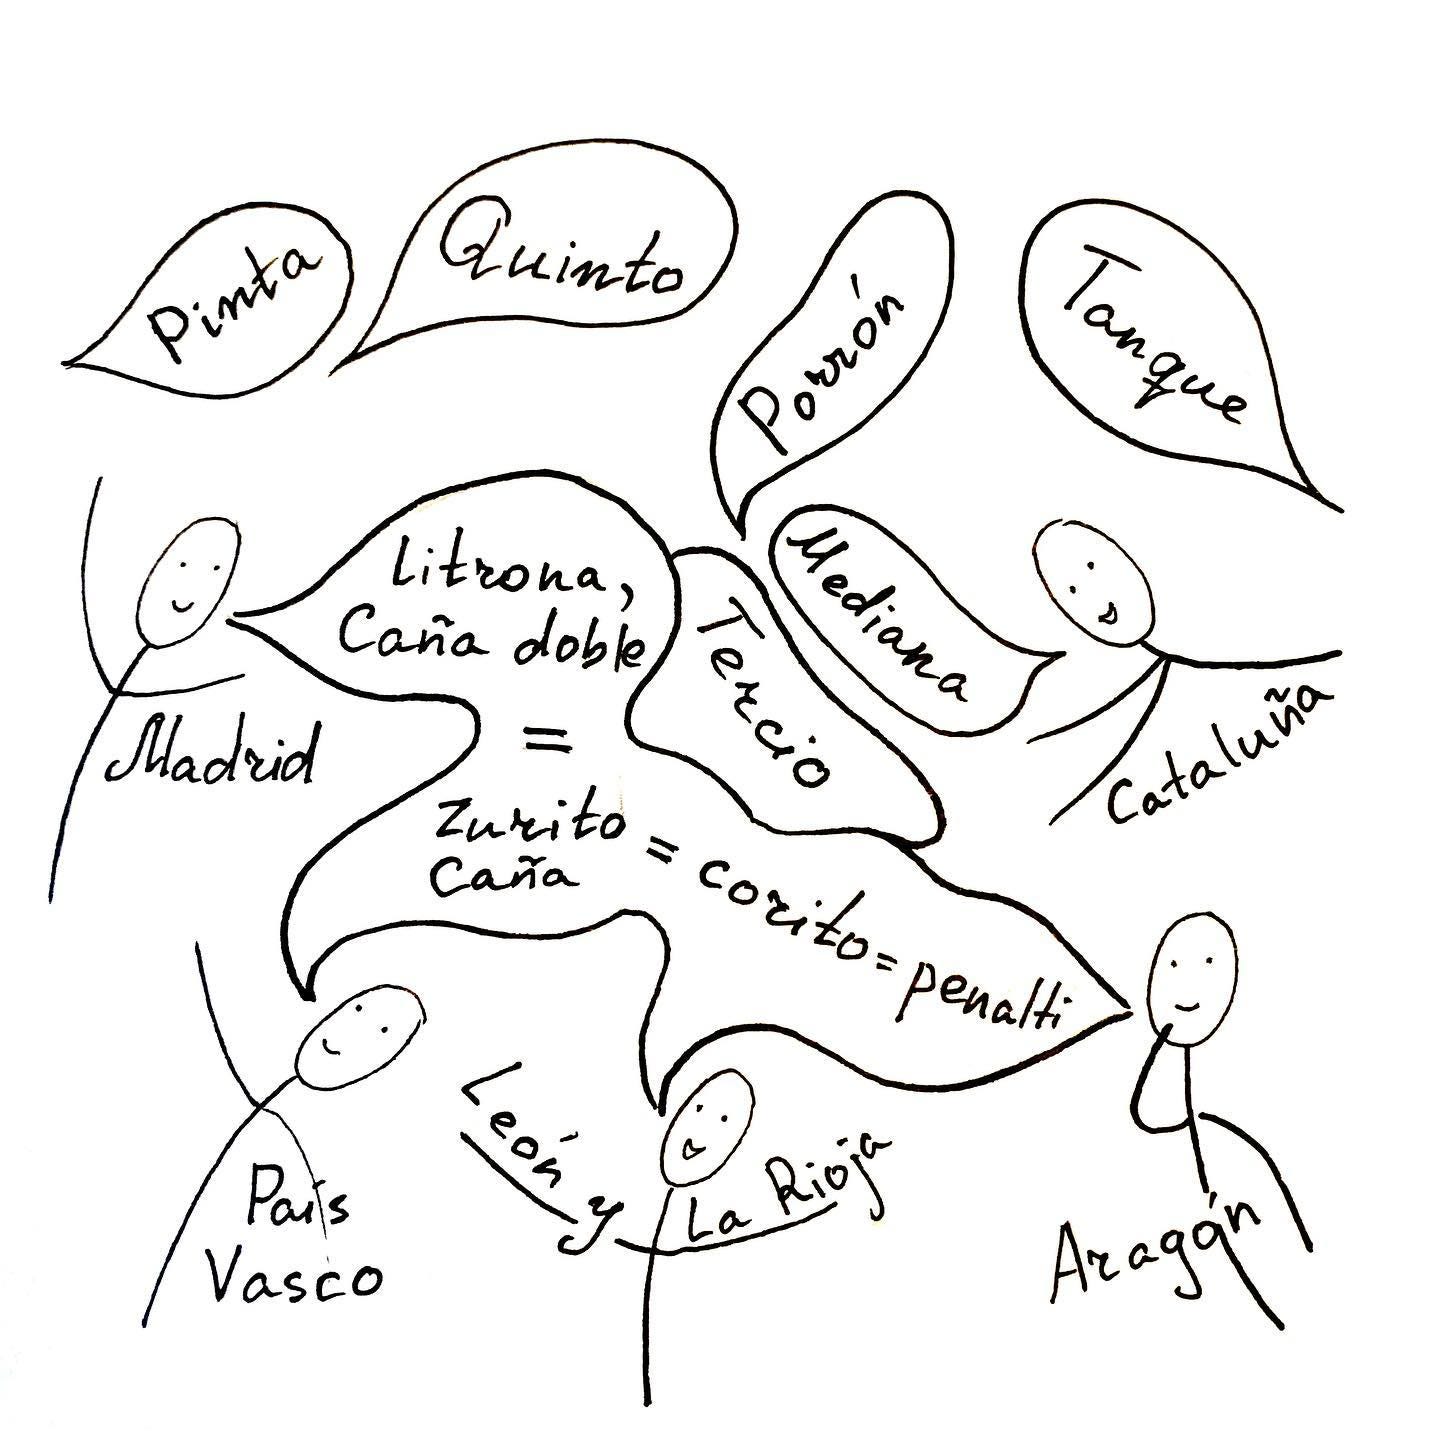 Pinta
Quinto
Porrón
Tanque
Litrona,
Caña doble
=
Zurito
Caña
= corito = penalti
Tercio
Mediana
Madrid
Cataluña
País
Vasco
León y La Rioja
Aragón